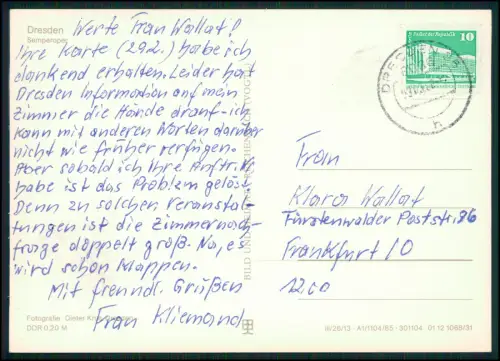 Dresden
Semperoper
Werte Frau Wallat!
Ihre Karte (29.2.) habe ich
dankend erhalten. Leider hat
Dresden Information auf mein
Zimmer die Hände drauf – ich
kann mit anderen Worten darüber
nicht wie früher verfügen.
Aber sobald ich Ihre Auftr. Nr
habe ist das Problem gelöst.
Denn zu solchen Veranstal-
tungen ist die Zimmernach-
frage doppelt groß. Na, es
wird schon klappen.
Mit freundl. Grüßen
Frau Kliemand
Fotografie: Dieter
DDR 0,20 M
BILD UND HEIMAT REICHENBACH (VOGTL)
Palast der Republik
10
DDR
DRESDEN
h
Frau
Klara Wallat
Fürstenwalder Poststr. 86
Frankfurt / O
1200
A1/1104/85 301104 01 12 1068/31